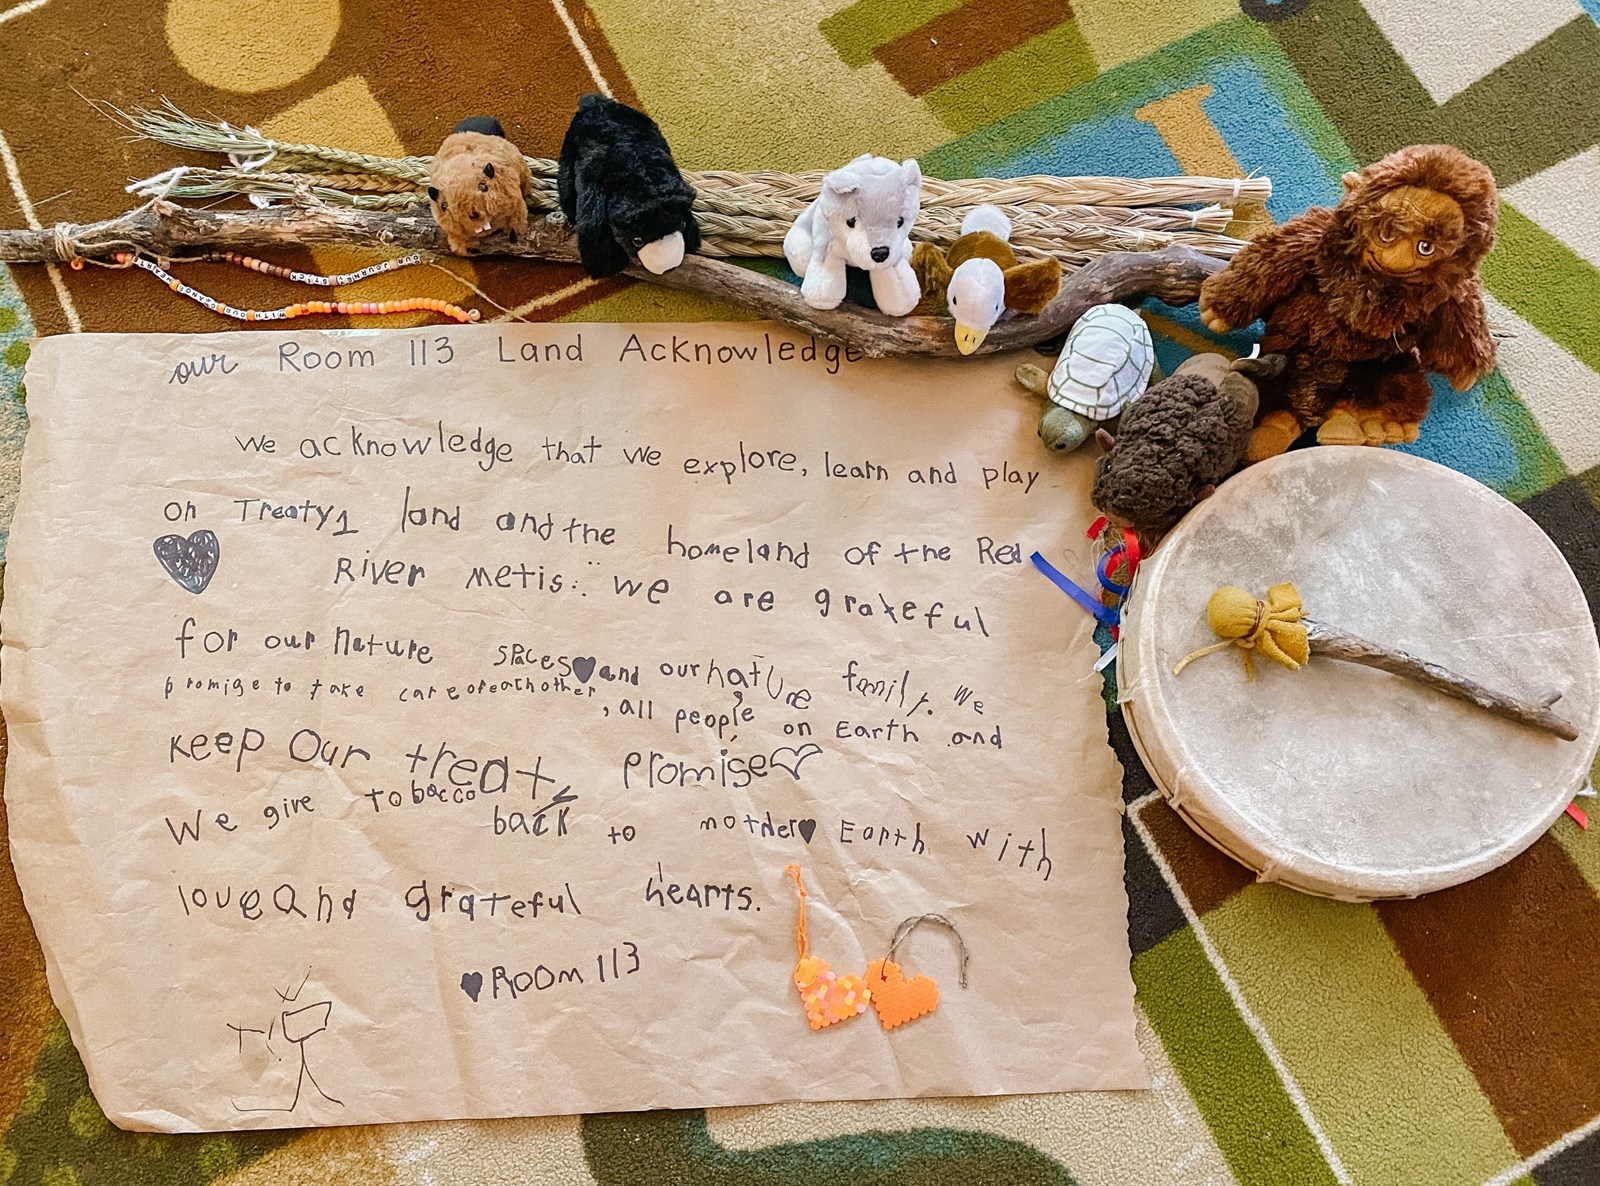 OUR JOURNEY STICK
WITH OUR
CHANGE
HEARTS
our Room 113 Land Acknowledge
We acknowledge that we explore, learn and play
on Treaty 1 land and the homeland of the Red
River metis. We are grateful
for our nature spaces and our nature family. We
promise to take care of each other, all people, on Earth and
Keep Our treaty promise
We give tobacco back to mother Earth with
love and grateful hearts.
Room 113